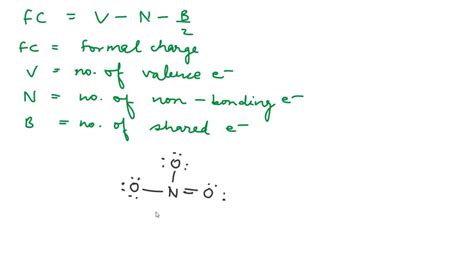 FC = V - N - B/2
FC = formal charge
V = no. of valence e⁻
N = no. of non-bonding e⁻
B = no. of shared e⁻
:Ö:
:Ö: — N = Ö: